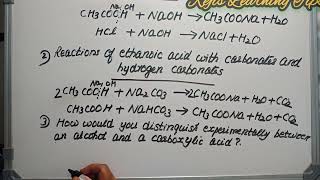 Kefis Learning Tips
Na OH
CH3COOH + NaOH → CH3COONa + H2O
HCl + NaOH → NaCl + H2O
2) Reactions of ethanoic acid with carbonates and
hydrogen carbonates
Na OH
2CH3COOH + Na2CO3 → 2CH3COONa + H2O + CO2
CH3COOH + NaHCO3 → CH3COONa + H2O + CO2
3) How would you distinguist experimentally between
an alcohol and a carboxylic acid?.